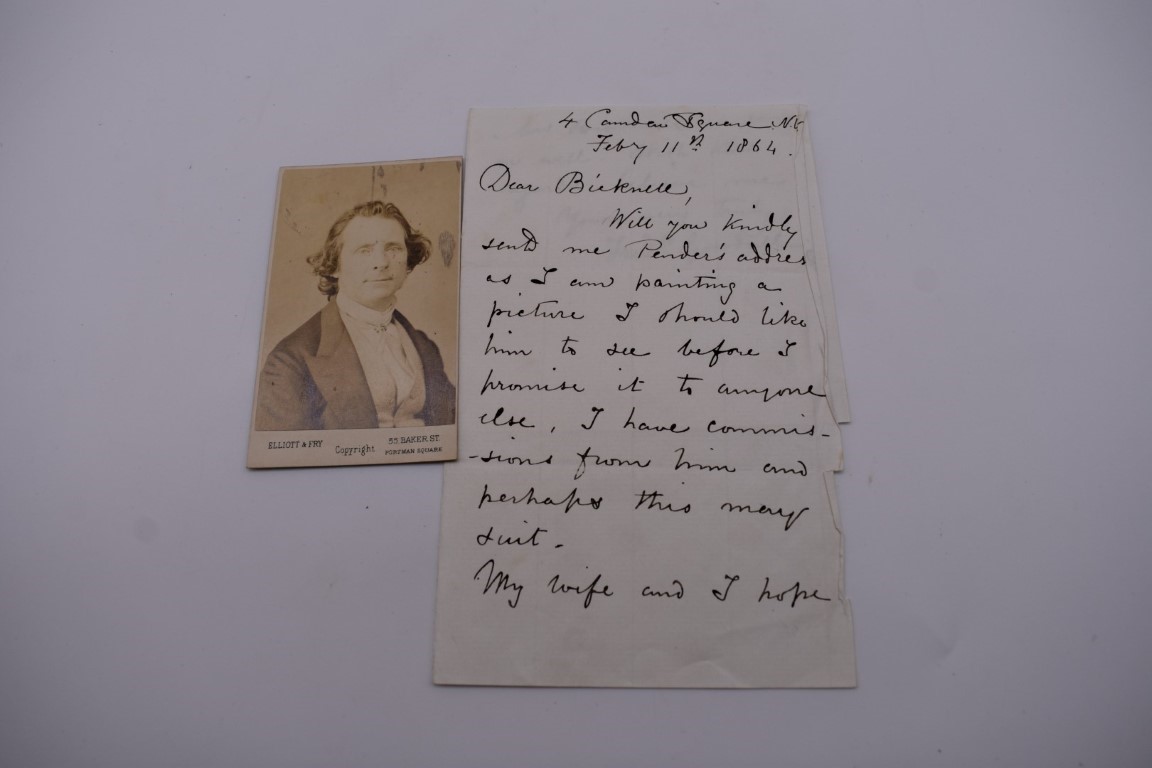 4 Camden Square N.W.
Feby 11th 1864.
Dear Bicknell,
Will you kindly
send me Pender's addres
as I am painting a
picture I should like
him to see before I
promise it to anyone
else, I have commis-
-sions from him and
perhaps this may
suit.
My wife and I hope
ELLIOTT & FRY
Copyright
55 BAKER ST.
PORTMAN SQUARE